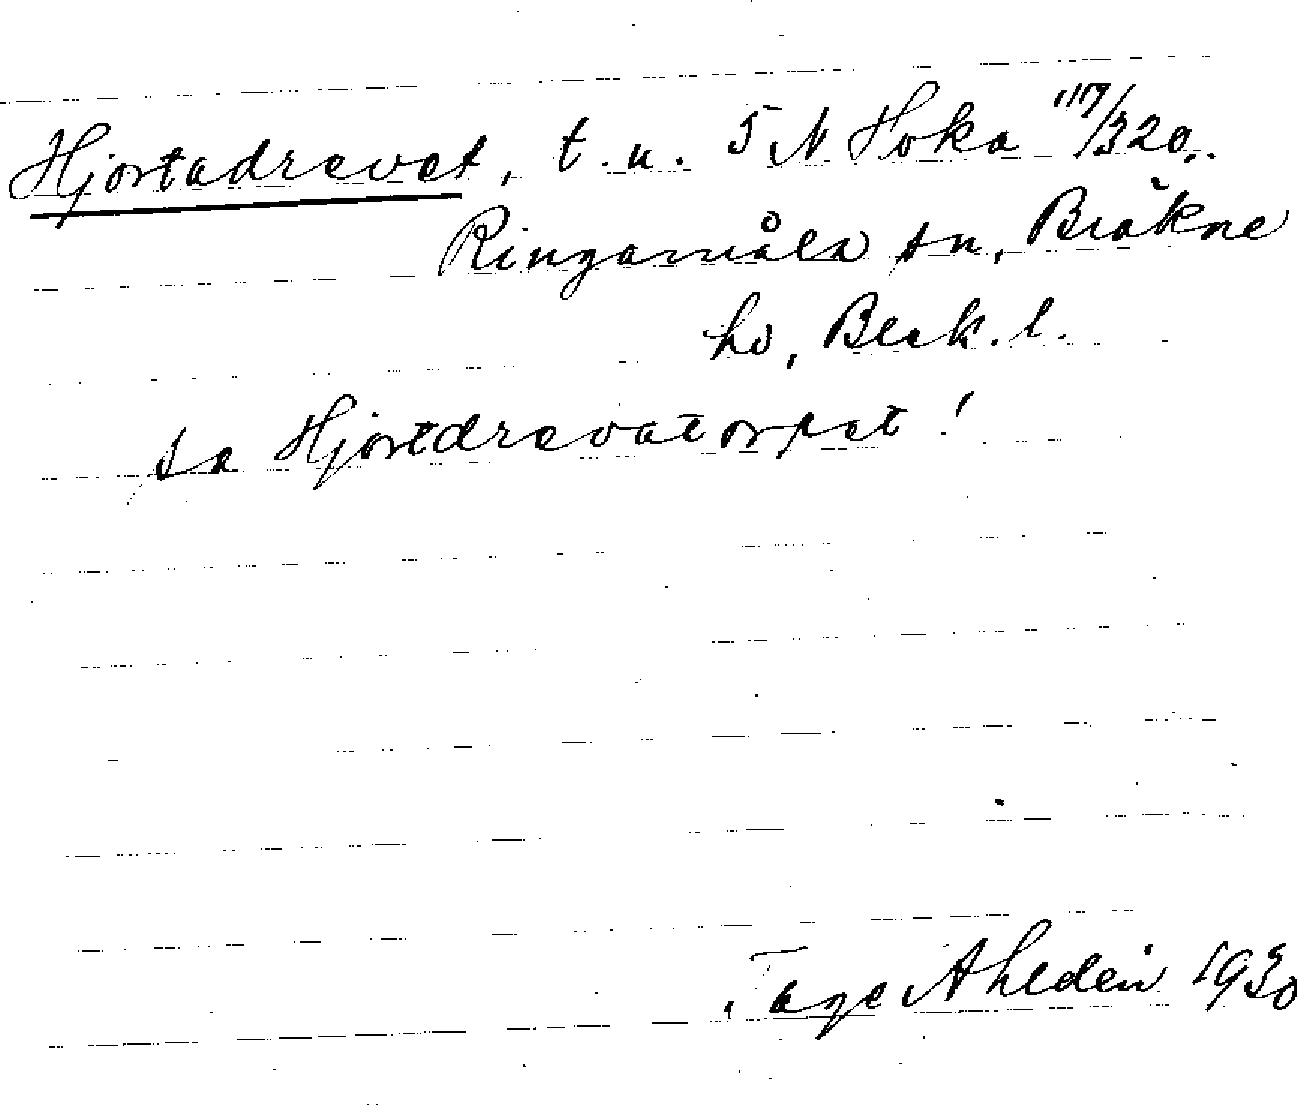 Hjortadrevet, t. u. 5 N Hoka 117/320.
Ringamåla sn, Bräkne
hd, Blek. l.
se Hjortdrevatorpet!
Tage Ahldén 1930